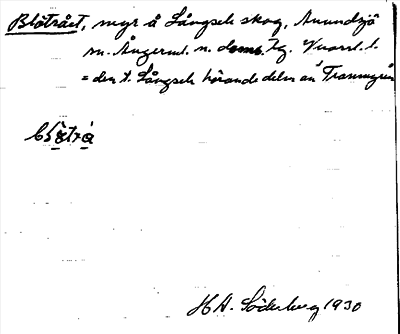 Blötrået, myr å Långsele skog, Anundsjö
sn. Ångerml. n. doms. Jg. Vuorst. l.
= den t. Långsele hörande delen av Tranmyrån
blötrå
H A. Söderberg 1930